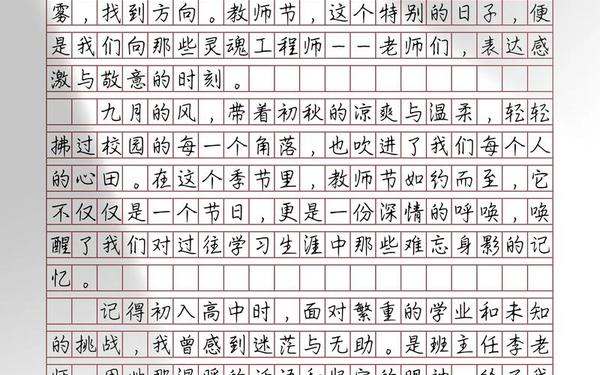 雾，找到方向。教师节，这个特别的日子，便
是我们向那些灵魂工程师——老师们，表达感
激与敬意的时刻。
九月的风，带着初秋的凉爽与温柔，轻轻
拂过校园的每一个角落，也吹进了我们每个人
的心田。在这个季节里，教师节如约而至，它
不仅仅是一个节日，更是一份深情的呼唤，唤
醒了我们对过往学习生涯中那些难忘身影的记
忆。
记得初入高中时，面对繁重的学业和未知
的挑战，我曾感到迷茫与无助。是班主任李老